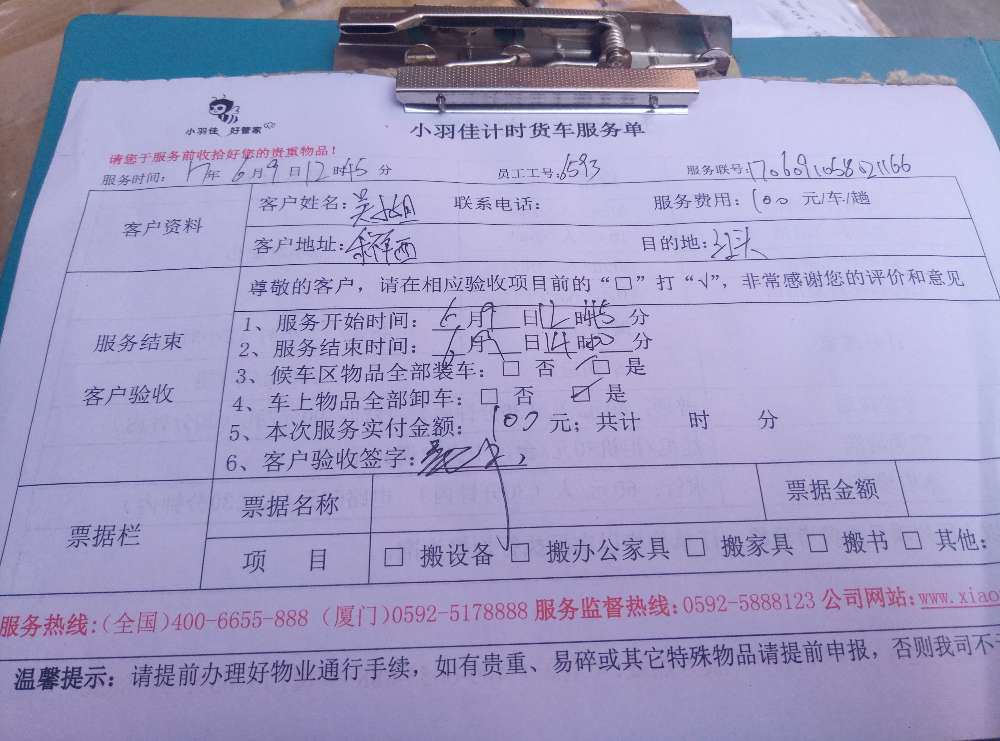 小羽佳 好管家
小羽佳计时货车服务单
请您于服务前收拾好您的贵重物品！
服务时间：17年6月9日12时45分 员工工号：6593 服务联号：
客户资料
客户姓名： 联系电话： 服务费用：100元/车/趟
客户地址： 目的地：
服务结束
客户验收
尊敬的客户，请在相应验收项目前的“□”打“√”，非常感谢您的评价和意见
1、服务开始时间：6月9日12时45分
2、服务结束时间：6月9日14时00分
3、候车区物品全部装车：□ 否 □ 是
4、车上物品全部卸车：□ 否 ☑ 是
5、本次服务实付金额：100元；共计 时 分
6、客户验收签字：
票据栏
票据名称 票据金额
项 目 □ 搬设备 □ 搬办公家具 □ 搬家具 □ 搬书 □ 其他：
服务热线：(全国)400-6655-888 (厦门)0592-5178888 服务监督热线：0592-5888123 公司网站：www.xiao
温馨提示：请提前办理好物业通行手续，如有贵重、易碎或其它特殊物品请提前申报，否则我司不